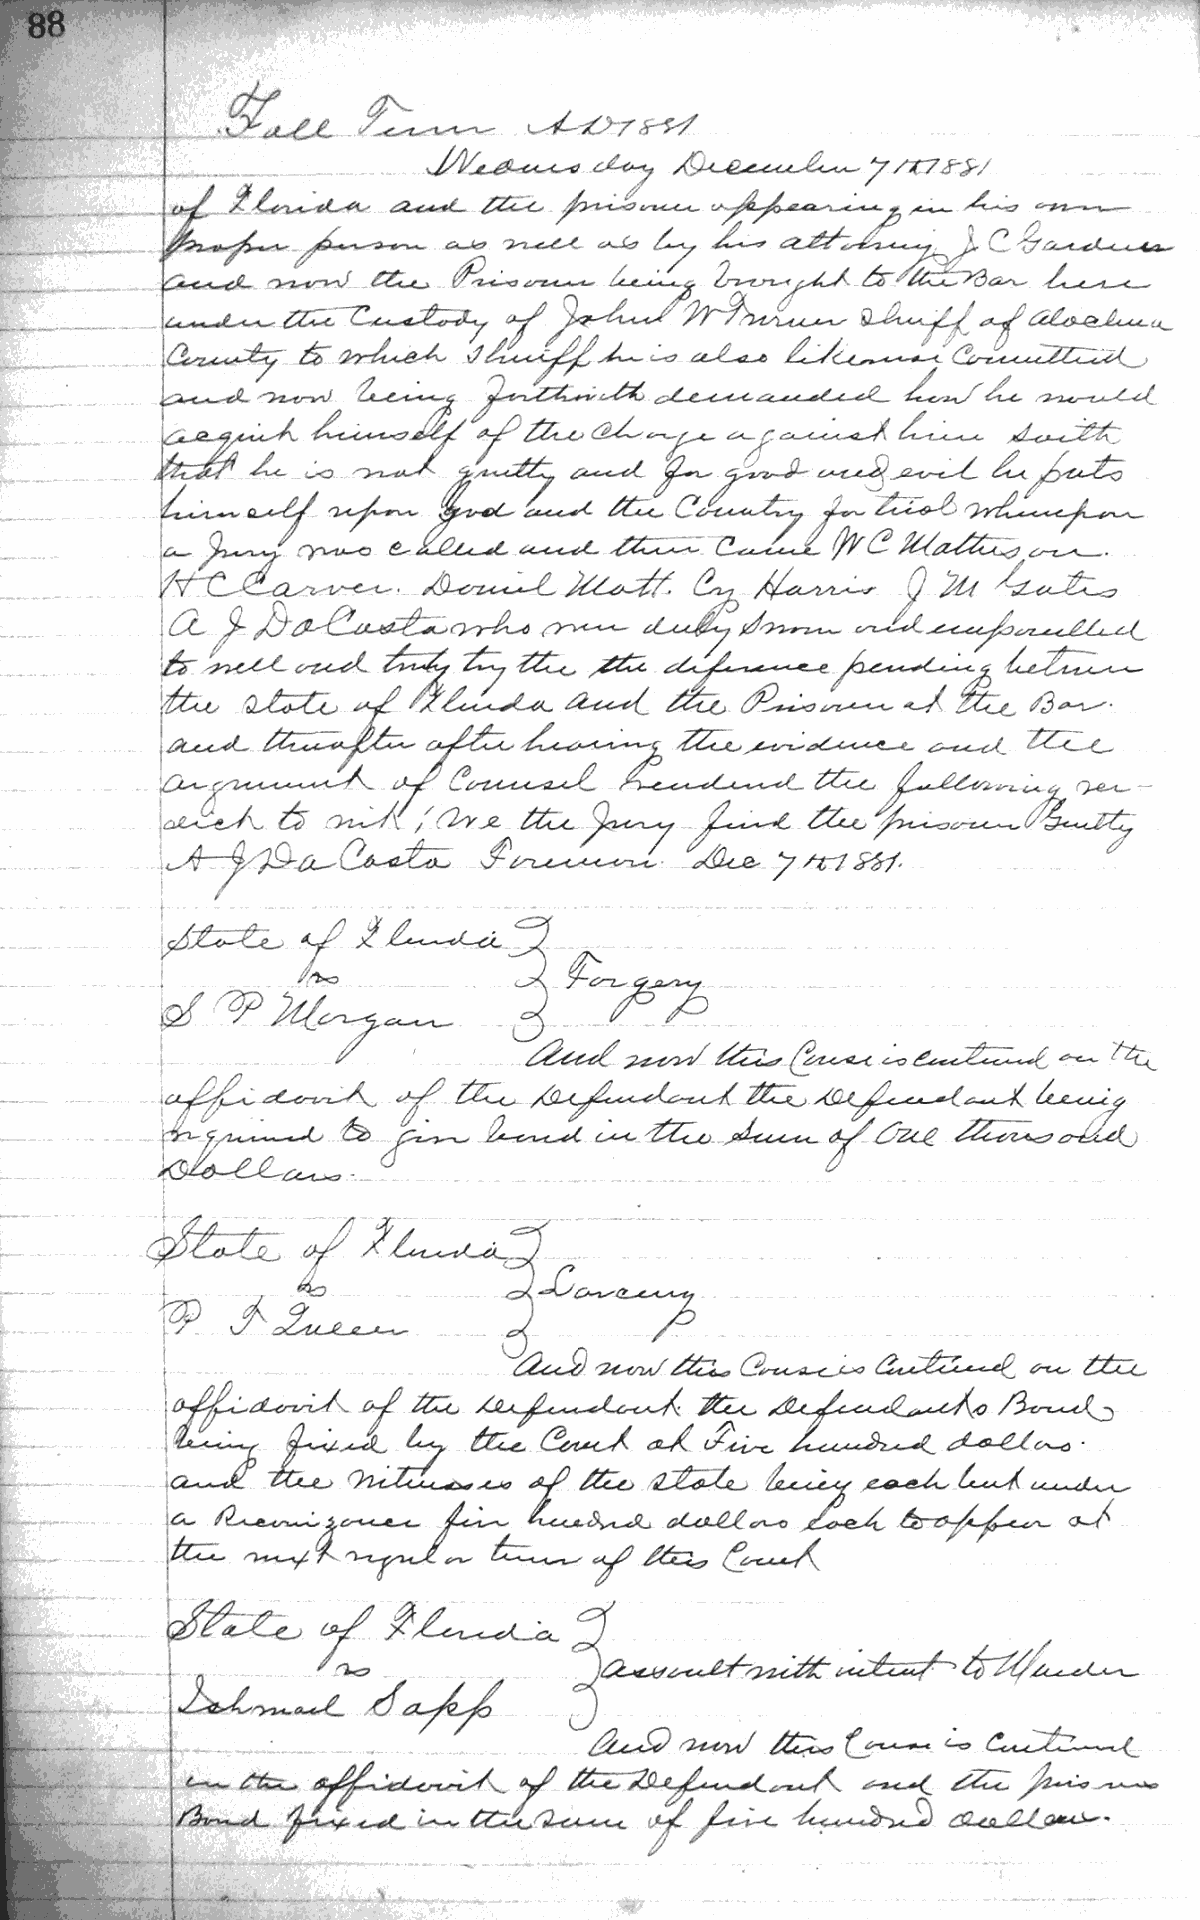 88
Fall Term AD 1881
Wednesday December 7th 1881
of Florida and the prisoner appearing in his own
proper person as well as by his attorney J C Gardner
and now the Prisoner being brought to the Bar here
under the Custody of John W Turner Sheriff of Alachua
County to which Sheriff he is also likewise Committed
and now being forthwith demanded how he would
acquit himself of the charge against him saith
that he is not guilty and for good and evil he puts
himself upon god and the Country for trial whereupon
a Jury was called and then came W C Matheson.
H C Carver. Daniel Mott. Cy Harris J M Gates
A J DaCosta who were duly Sworn and empanelled
to well and truly try the the diference pending between
the State of Florida and the Prisoner at the Bar.
and thereafter after hearing the evidence and the
argument of Counsel rendered the following ver-
dict to wit; We the Jury find the prisoner Guilty
A J DaCosta Foreman. Dec 7th 1881.
State of Florida
vs
Forgery
S P Morgan
And now this Cause is continued on the
affidavit of the Defendant the Defendant being
required to give bond in the Sum of One thousand
Dollars.
State of Florida
vs
Larceny
P F
And now this Cause is Continued on the
affidavit of the Defendant the Defendants Bond
being fixed by the Court at Five hundred dollars.
and the Witnesses of the State being each put under
a Recognizance five hundred dollars each to appear at
the next regular term of this Court
State of Florida
vs
assault with intent to Murder
Ishmael Sapp
And now this Cause is Continued
on the affidavit of the Defendant and the prisoners
Bond fixed in the sum of five hundred dollars.